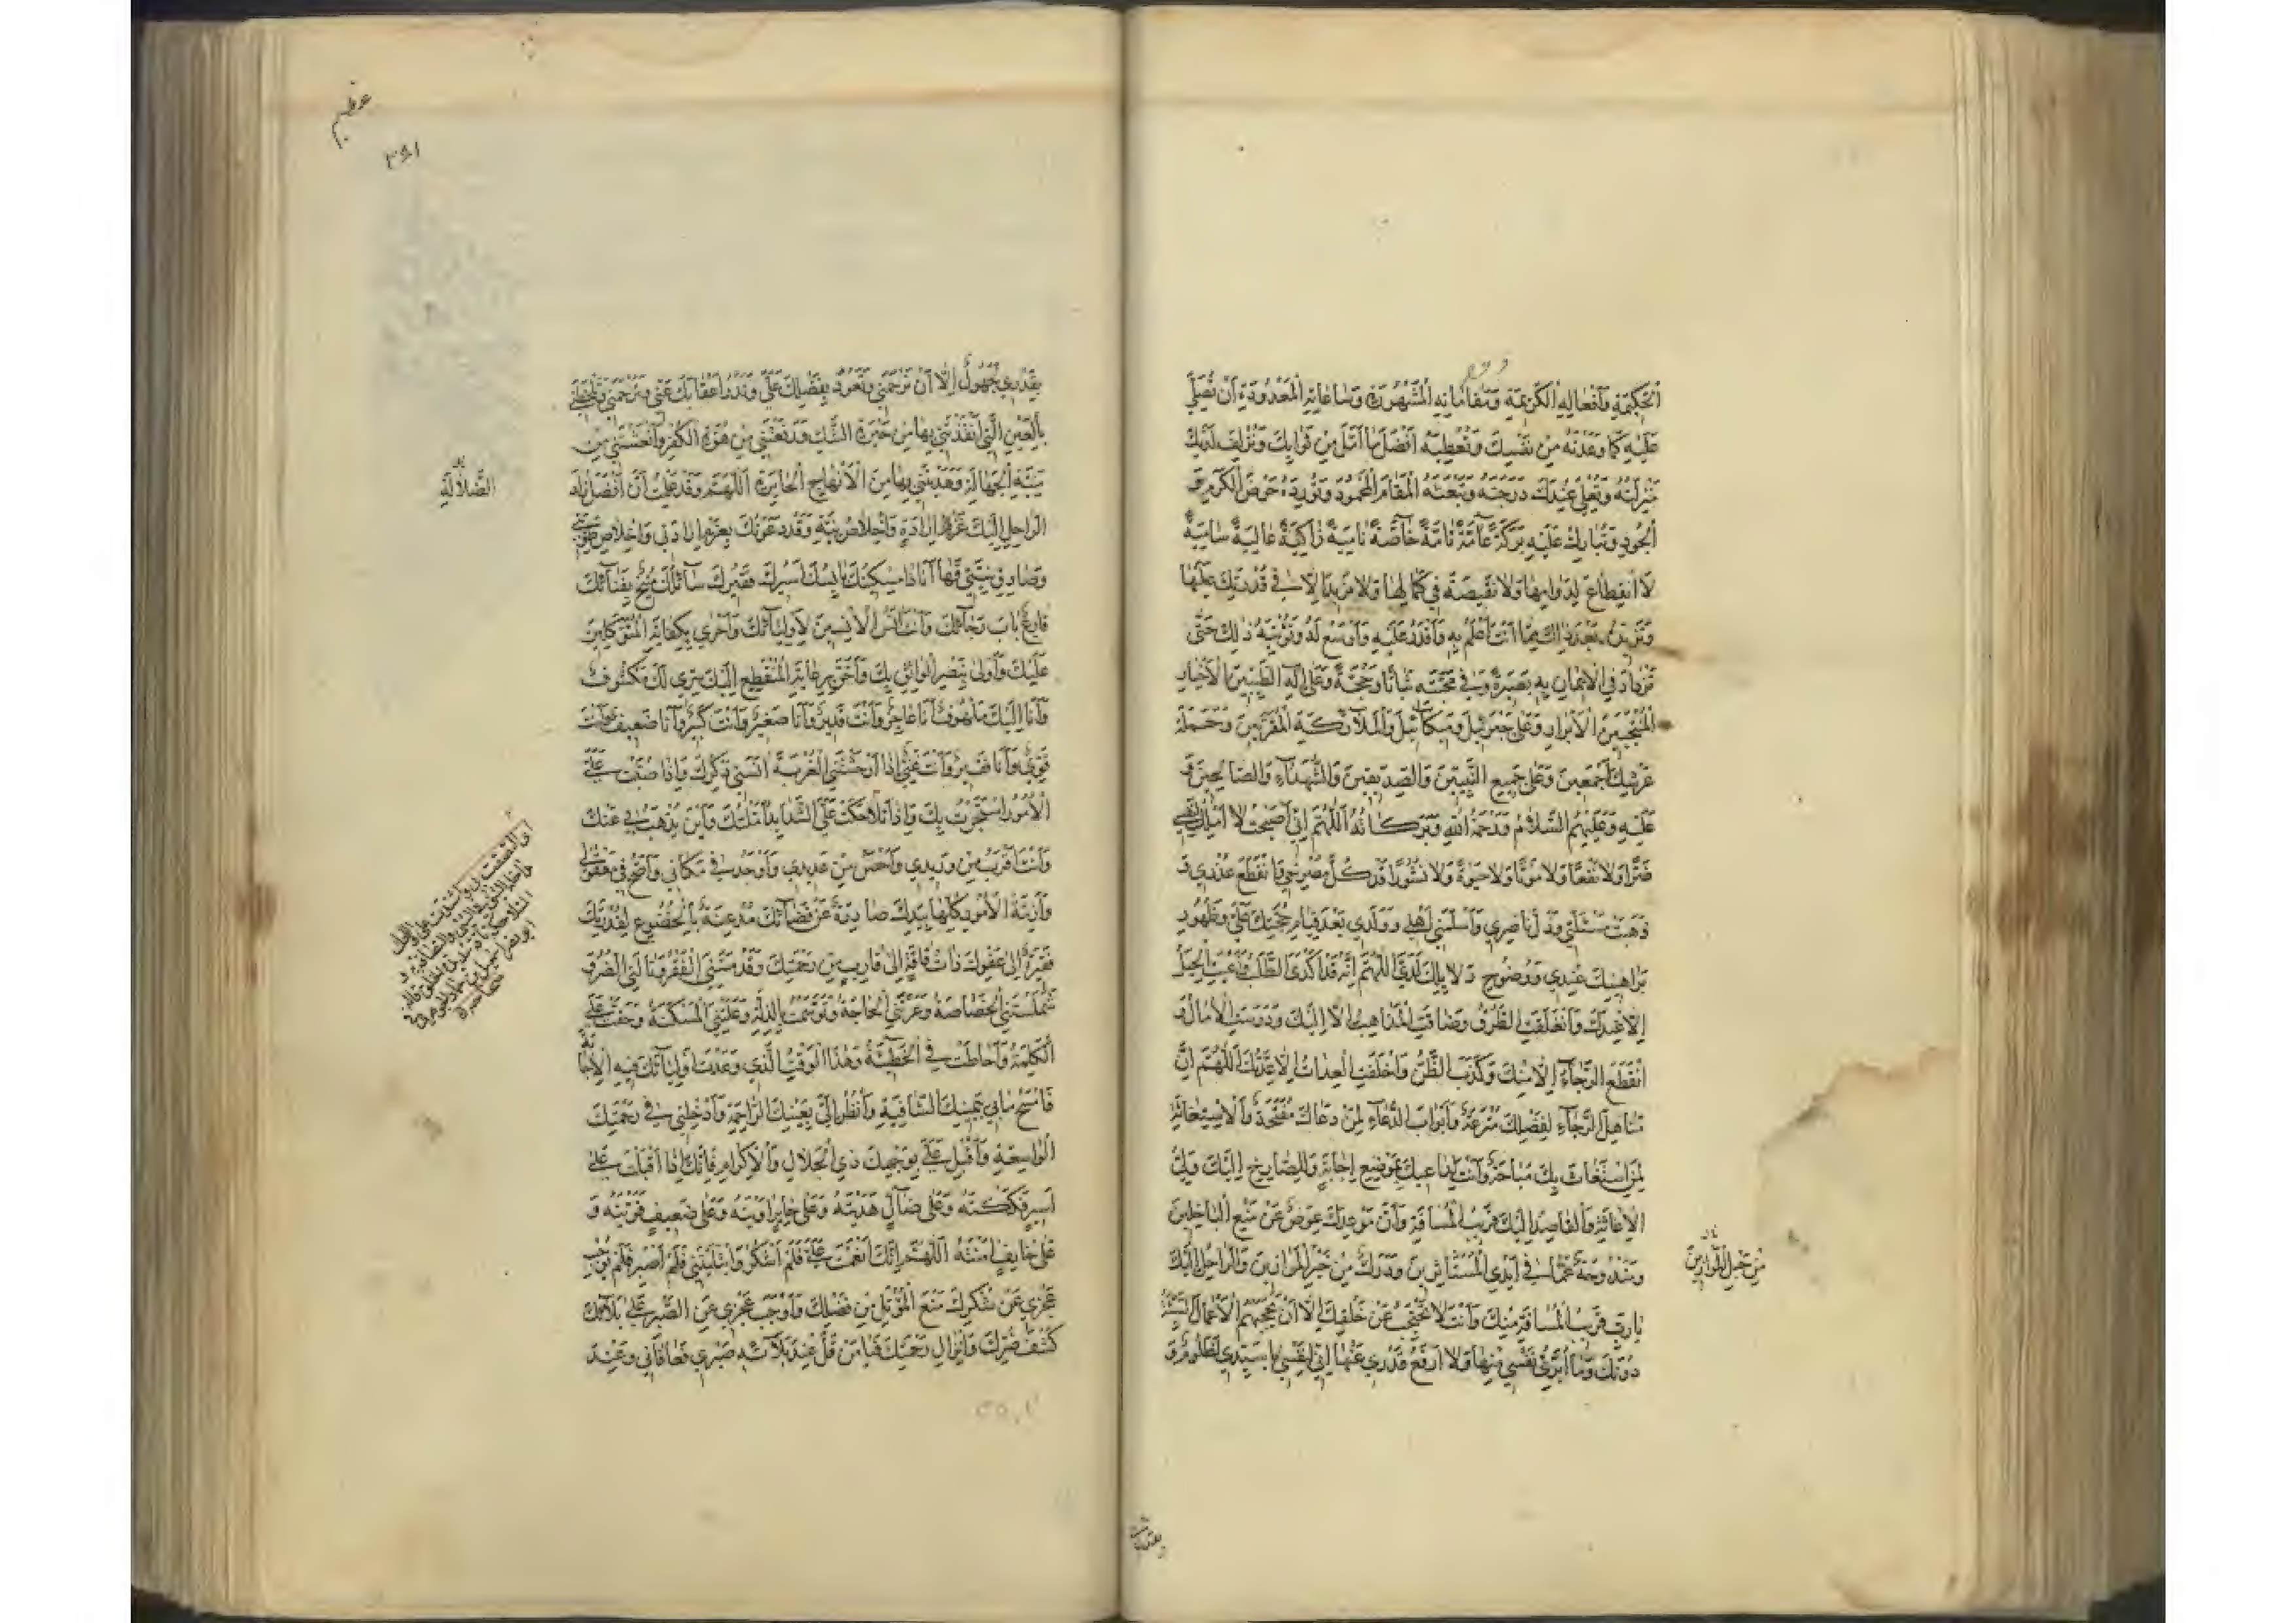 الْحَكِيمَةِ وَأَفْعَالِهِ الْكَرِيمَةِ وَمَقَامَاتِهِ الْمَشْهُورَةِ وَسَاعَاتِهِ الْمَعْدُودَةِ أَنْ تُصَلِّيَ
عَلَيْهِ كَمَا وَعَدْتَهُ مِنْ نَفْسِكَ وَتُعْطِيَهُ أَفْضَلَ مَا أَمَّلَ مِنْ ثَوَابِكَ وَتُزْلِفَ لَدَيْكَ
مَنْزِلَتَهُ وَتُعْلِيَ عِنْدَكَ دَرَجَتَهُ وَتَبْعَثَهُ الْمَقَامَ الْمَحْمُودَ وَتُورِدَهُ حَوْضَ الْكَرَمِ وَ
الْجُودِ وَتُبَارِكَ عَلَيْهِ بَرَكَةً عَامَّةً تَامَّةً خَاصَّةً نَامِيَةً زَاكِيَةً عَالِيَةً سَامِيَةً
لَا انْقِطَاعَ لِدَوَامِهَا وَلَا نَقِيصَةَ فِي كَمَالِهَا وَلَا مَزِيدَ إِلَّا فِي قُدْرَتِكَ عَلَيْهَا
وَتَزِيدَهُ بَعْدَ ذَلِكَ مِمَّا أَنْتَ أَعْلَمُ بِهِ وَأَقْدَرُ عَلَيْهِ وَأَوْسَعُ لَهُ وَتُؤْتِيَهُ ذَلِكَ حَتَّى
تَزْدَادَ فِي الْإِيمَانِ بِهِ بَصِيرَةً وَفِي مَحَبَّتِهِ ثَبَاتًا وَحُجَّةً وَعَلَى آلِهِ الطَّيِّبِينَ الْأَخْيَارِ
الْمُنْتَجَبِينَ الْأَبْرَارِ وَعَلَى جَبْرَئِيلَ وَمِيكَائِيلَ وَالْمَلَائِكَةِ الْمُقَرَّبِينَ وَحَمَلَةِ
عَرْشِكَ أَجْمَعِينَ وَعَلَى جَمِيعِ النَّبِيِّينَ وَالصِّدِّيقِينَ وَالشُّهَدَاءِ وَالصَّالِحِينَ وَ
عَلَيْهِ وَعَلَيْهِمُ السَّلَامُ وَرَحْمَةُ اللهِ وَبَرَكَاتُهُ اللَّهُمَّ إِنِّي أَصْبَحْتُ لَا أَمْلِكُ لِنَفْسِي
ضَرًّا وَلَا نَفْعًا وَلَا مَوْتًا وَلَا حَيٰوةً وَلَا نُشُورًا قَدْ ذَلَّ مَصْرَعِي وَانْقَطَعَ عُذْرِي وَ
ذَهَبَتْ مَسْئَلَتِي وَذَلَّ نَاصِرِي وَأَسْلَمَنِي أَهْلِي وَوَلَدِي بَعْدَ قِيَامِ حُجَّتِكَ عَلَيَّ وَظُهُورِ
بَرَاهِينِكَ عِنْدِي وَوُضُوحِ دَلَائِلِكَ لَدَيَّ اللَّهُمَّ إِنَّهُ قَدْ أَكْدَى الطَّلَبُ وَأَعْيَتِ الْحِيَلُ
إِلَّا عِنْدَكَ وَانْغَلَقَتِ الطُّرُقُ وَضَاقَتِ الْمَذَاهِبُ إِلَّا إِلَيْكَ وَدَرَسَتِ الْآمَالُ وَ
انْقَطَعَ الرَّجَاءُ إِلَّا مِنْكَ وَكَذَبَ الظَّنُّ وَأَخْلَفَتِ الْعِدَاتُ إِلَّا عِدَتُكَ اللَّهُمَّ إِنَّ
مَنَاهِلَ الرَّجَاءِ لِفَضْلِكَ مُتْرَعَةٌ وَأَبْوَابَ الدُّعَاءِ لِمَنْ دَعَاكَ مُفَتَّحَةٌ وَالْاِسْتِغَاثَةَ
لِمَنِ اسْتَغَاثَ بِكَ مُبَاحَةٌ وَأَنْتَ لِدَاعِيكَ بِمَوْضِعِ إِجَابَةٍ وَلِلصَّارِخِ إِلَيْكَ وَلِيُّ
الْإِغَاثَةِ وَالْقَاصِدَ إِلَيْكَ قَرِيبُ الْمَسَافَةِ وَأَنَّ مَوْعِدَكَ عِوَضٌ عَنْ مَنْعِ الْبَاخِلِينَ
وَمَنْدُوحَةٌ عَمَّا فِي أَيْدِي الْمُسْتَأْثِرِينَ وَدَرَكٌ مِنْ خَيْرِ الْمُوَازِرِينَ وَالرَّاحِلَ إِلَيْكَ
مِنْ حِيَلِ الْمُوَازِرِينَ
يَا رَبِّ قَرِيبُ الْمَسَافَةِ مِنْكَ وَأَنْتَ لَا تَحْتَجِبُ عَنْ خَلْقِكَ إِلَّا أَنْ تَحْجُبَهُمُ الْأَعْمَالُ السَّيِّئَةُ
دُونَكَ وَمَا أُبَرِّئُ نَفْسِي مِنْهَا وَلَا أَرْفَعُ قَدْرِي عَنْهَا إِنِّي لِنَفْسِي يَا سَيِّدِي لَظَلُومٌ وَ
عظیم
بِقَدْرِي جَهُولٌ إِلَّا أَنْ تَرْحَمَنِي وَتَعُودَ بِفَضْلِكَ عَلَيَّ وَتَدْرَأَ عِقَابَكَ عَنِّي وَتَرْحَمَنِي وَتَلْحَظَنِي
بِالْعَيْنِ الَّتِي أَنْقَذْتَنِي بِهَا مِنْ حَيْرَةِ الشَّكِّ وَرَفَعْتَنِي مِنْ هُوَّةِ الْكُفْرِ وَأَنْعَشْتَنِي مِنْ
الضَّلَالَةِ
مِيتَةِ الْجَهَالَةِ وَهَدَيْتَنِي بِهَا مِنَ الْأَنْهَاجِ الْحَائِرَةِ اللَّهُمَّ وَقَدْ عَلِمْتُ أَنَّ أَفْضَلَ زَادِ
الرَّاحِلِ إِلَيْكَ عَزْمُ إِرَادَةٍ وَإِخْلَاصُ نِيَّةٍ وَقَدْ دَعَوْتُكَ بِعَزْمِ إِرَادَتِي وَإِخْلَاصِ طَوِيَّتِي
وَصَادِقِ نِيَّتِي فَهَا أَنَا ذَا مِسْكِينُكَ بَائِسُكَ أَسِيرُكَ فَقِيرُكَ سَائِلُكَ مُنِيخٌ بِفِنَائِكَ
قَارِعٌ بَابَ رَجَائِكَ وَأَنْتَ آنَسُ الْآنِسِينَ لِأَوْلِيَائِكَ وَأَحْرَى بِكِفَايَةِ الْمُتَوَكِّلِينَ
عَلَيْكَ وَأَوْلَى بِنَصْرِ الْوَاثِقِ بِكَ وَأَحَقُّ بِرِعَايَةِ الْمُنْقَطِعِ إِلَيْكَ سِرِّي لَكَ مَكْشُوفٌ
وَأَنَا إِلَيْكَ مَلْهُوفٌ أَنَا عَاجِزٌ وَأَنْتَ قَدِيرٌ وَأَنَا صَغِيرٌ وَأَنْتَ كَبِيرٌ وَأَنَا ضَعِيفٌ وَأَنْتَ
قَوِيٌّ وَأَنَا فَقِيرٌ وَأَنْتَ غَنِيٌّ إِذَا أَوْحَشَتْنِي الْغُرْبَةُ آنَسَنِي ذِكْرُكَ وَإِذَا صُبَّتْ عَلَيَّ
الْأُمُورُ اسْتَجَرْتُ بِكَ وَإِذَا تَلَاحَكَتْ عَلَيَّ الشَّدَائِدُ أَمَّلْتُكَ وَأَيْنَ يُذْهَبُ بِي عَنْكَ
وَأَنْتَ أَقْرَبُ مِنْ وَرِيدِي وَأَحْصَنُ مِنْ عَدِيدِي وَأَوْجَدُ فِي مَكَانِي وَأَصَحُّ فِي مَعْقُولِي
وَأَزِمَّةُ الْأُمُورِ كُلِّهَا بِيَدِكَ صَادِرَةٌ عَنْ قَضَائِكَ مُذْعِنَةٌ بِالْخُضُوعِ لِقُدْرَتِكَ
فَقِيرَةٌ إِلَى عَفْوِكَ ذَاتُ فَاقَةٍ إِلَى قَارِبٍ مِنْ رَحْمَتِكَ وَقَدْ مَسَّنِي الْفَقْرُ وَنَالَنِي الضُّرُّ وَ
شَمِلَتْنِي الْخَصَاصَةُ وَعَرَتْنِي الْحَاجَةُ وَتَوَسَّمْتُ بِالذِّلَّةِ وَعَلَتْنِي الْمَسْكَنَةُ وَحَقَّتْ عَلَيَّ
الْكَلِمَةُ وَأَحَاطَتْ بِي الْخَطِيئَةُ وَهَذَا الْوَقْتُ الَّذِي وَعَدْتَ أَوْلِيَاءَكَ فِيهِ الْإِجَابَةَ
فَامْسَحْ مَا بِي بِيَمِينِكَ الشَّافِيَةِ وَانْظُرْ إِلَيَّ بِعَيْنِكَ الرَّاحِمَةِ وَأَدْخِلْنِي فِي رَحْمَتِكَ
الْوَاسِعَةِ وَأَقْبِلْ عَلَيَّ بِوَجْهِكَ ذِي الْجَلَالِ وَالْإِكْرَامِ فَإِنَّكَ إِذَا أَقْبَلْتَ عَلَى
أَسِيرٍ فَكَكْتَهُ وَعَلَى ضَالٍّ هَدَيْتَهُ وَعَلَى حَائِرٍ آوَيْتَهُ وَعَلَى ضَعِيفٍ قَوَّيْتَهُ وَ
عَلَى خَائِفٍ آمَنْتَهُ اللَّهُمَّ إِنَّكَ أَنْعَمْتَ عَلَيَّ فَلَمْ أَشْكُرْ وَابْتَلَيْتَنِي فَلَمْ أَصْبِرْ فَلَمْ يُوجِبْ
عَجْزِي عَنْ شُكْرِكَ مَنْعَ الْمُؤَمَّلِ مِنْ فَضْلِكَ وَأَوْجَبَ عَجْزِي عَنِ الصَّبْرِ عَلَى بَلَائِكَ
كَشْفَ ضُرِّكَ وَإِنْزَالَ رَحْمَتِكَ فَيَا مَنْ قَلَّ عِنْدَ بَلَائِهِ صَبْرِي فَعَافَانِي وَعِنْدَ